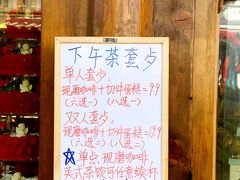 下午茶套歺
单人套歺:
现磨咖啡+切件蛋糕=99
(六选一) (八选一)
双人套歺:
现磨咖啡+切件蛋糕=199
(六选二) (八选二)
☆单点现磨咖啡,
英式茶饮可任意续杯